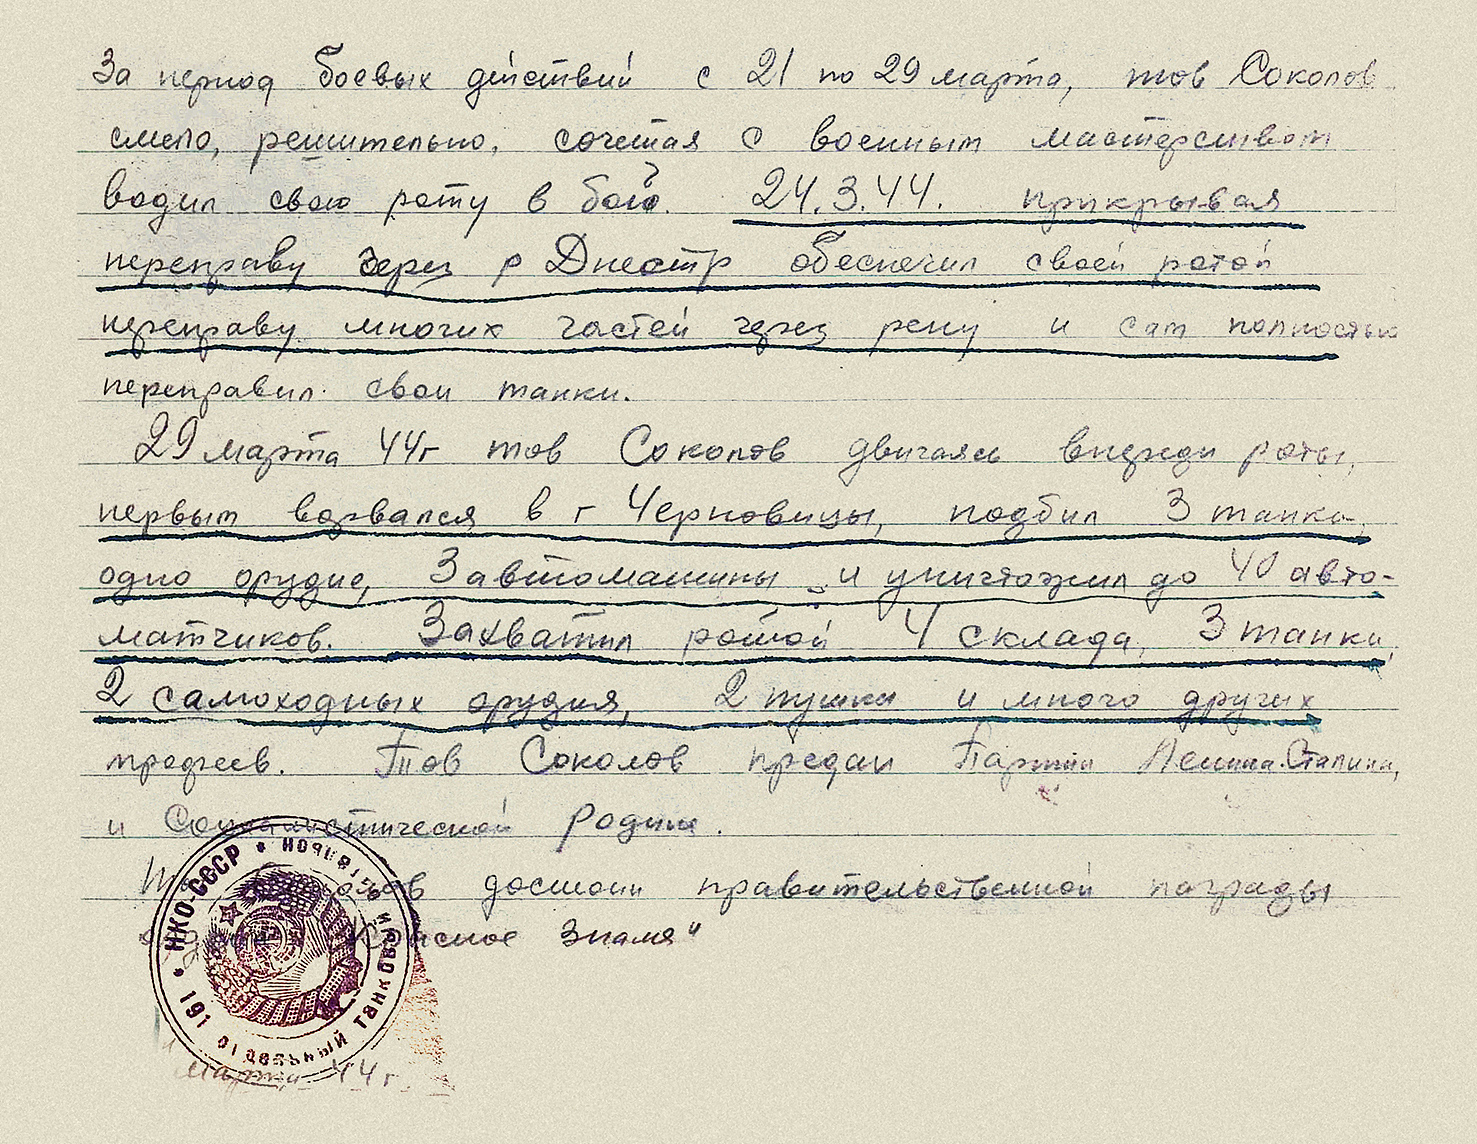 За период боевых действий с 21 по 29 марта, тов Соколов
смело, решительно, сочетая с военным мастерством
водил свою роту в бой. 24.3.44. прикрывая
переправу через р Днестр обеспечил своей ротой
переправу многих частей через реку и сам полностью
переправил свои танки.
29 марта 44г тов Соколов двигаясь впереди роты,
первым ворвался в г Черновицы, подбил 3 танка,
одно орудие, 3 автомашины и уничтожил до 40 авто-
матчиков. Захватил ротой 4 склада, 3 танка,
2 самоходных орудия, 2 пушки и много других
трофеев. Тов Соколов предан Партии Ленина-Сталина,
и Социалистической Родине.
достоин правительственной награды
Красное Знамя"
НКО-СССР
191 отдельный танковый
марта 44г.